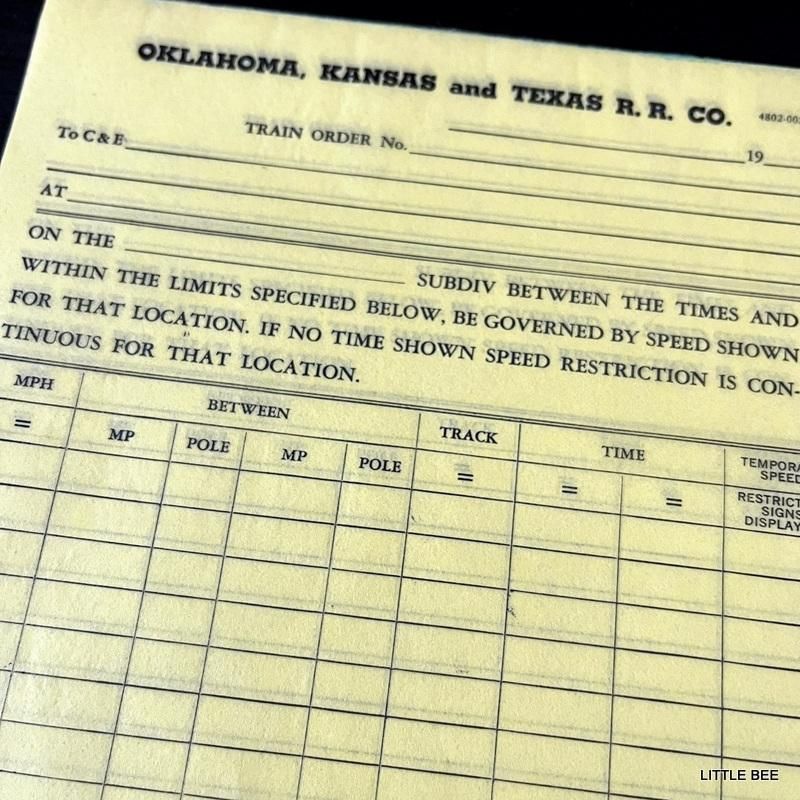 OKLAHOMA, KANSAS and TEXAS R. R. CO.
4802-00
TRAIN ORDER No.
19
To C & E
AT
ON THE SUBDIV BETWEEN THE TIMES AND
WITHIN THE LIMITS SPECIFIED BELOW, BE GOVERNED BY SPEED SHOWN
FOR THAT LOCATION. IF NO TIME SHOWN SPEED RESTRICTION IS CON-
TINUOUS FOR THAT LOCATION.
MPH BETWEEN TRACK TIME TEMPORA
SPEED
= MP POLE MP POLE = = = RESTRICT
SIGNS
DISPLAY
LITTLE BEE